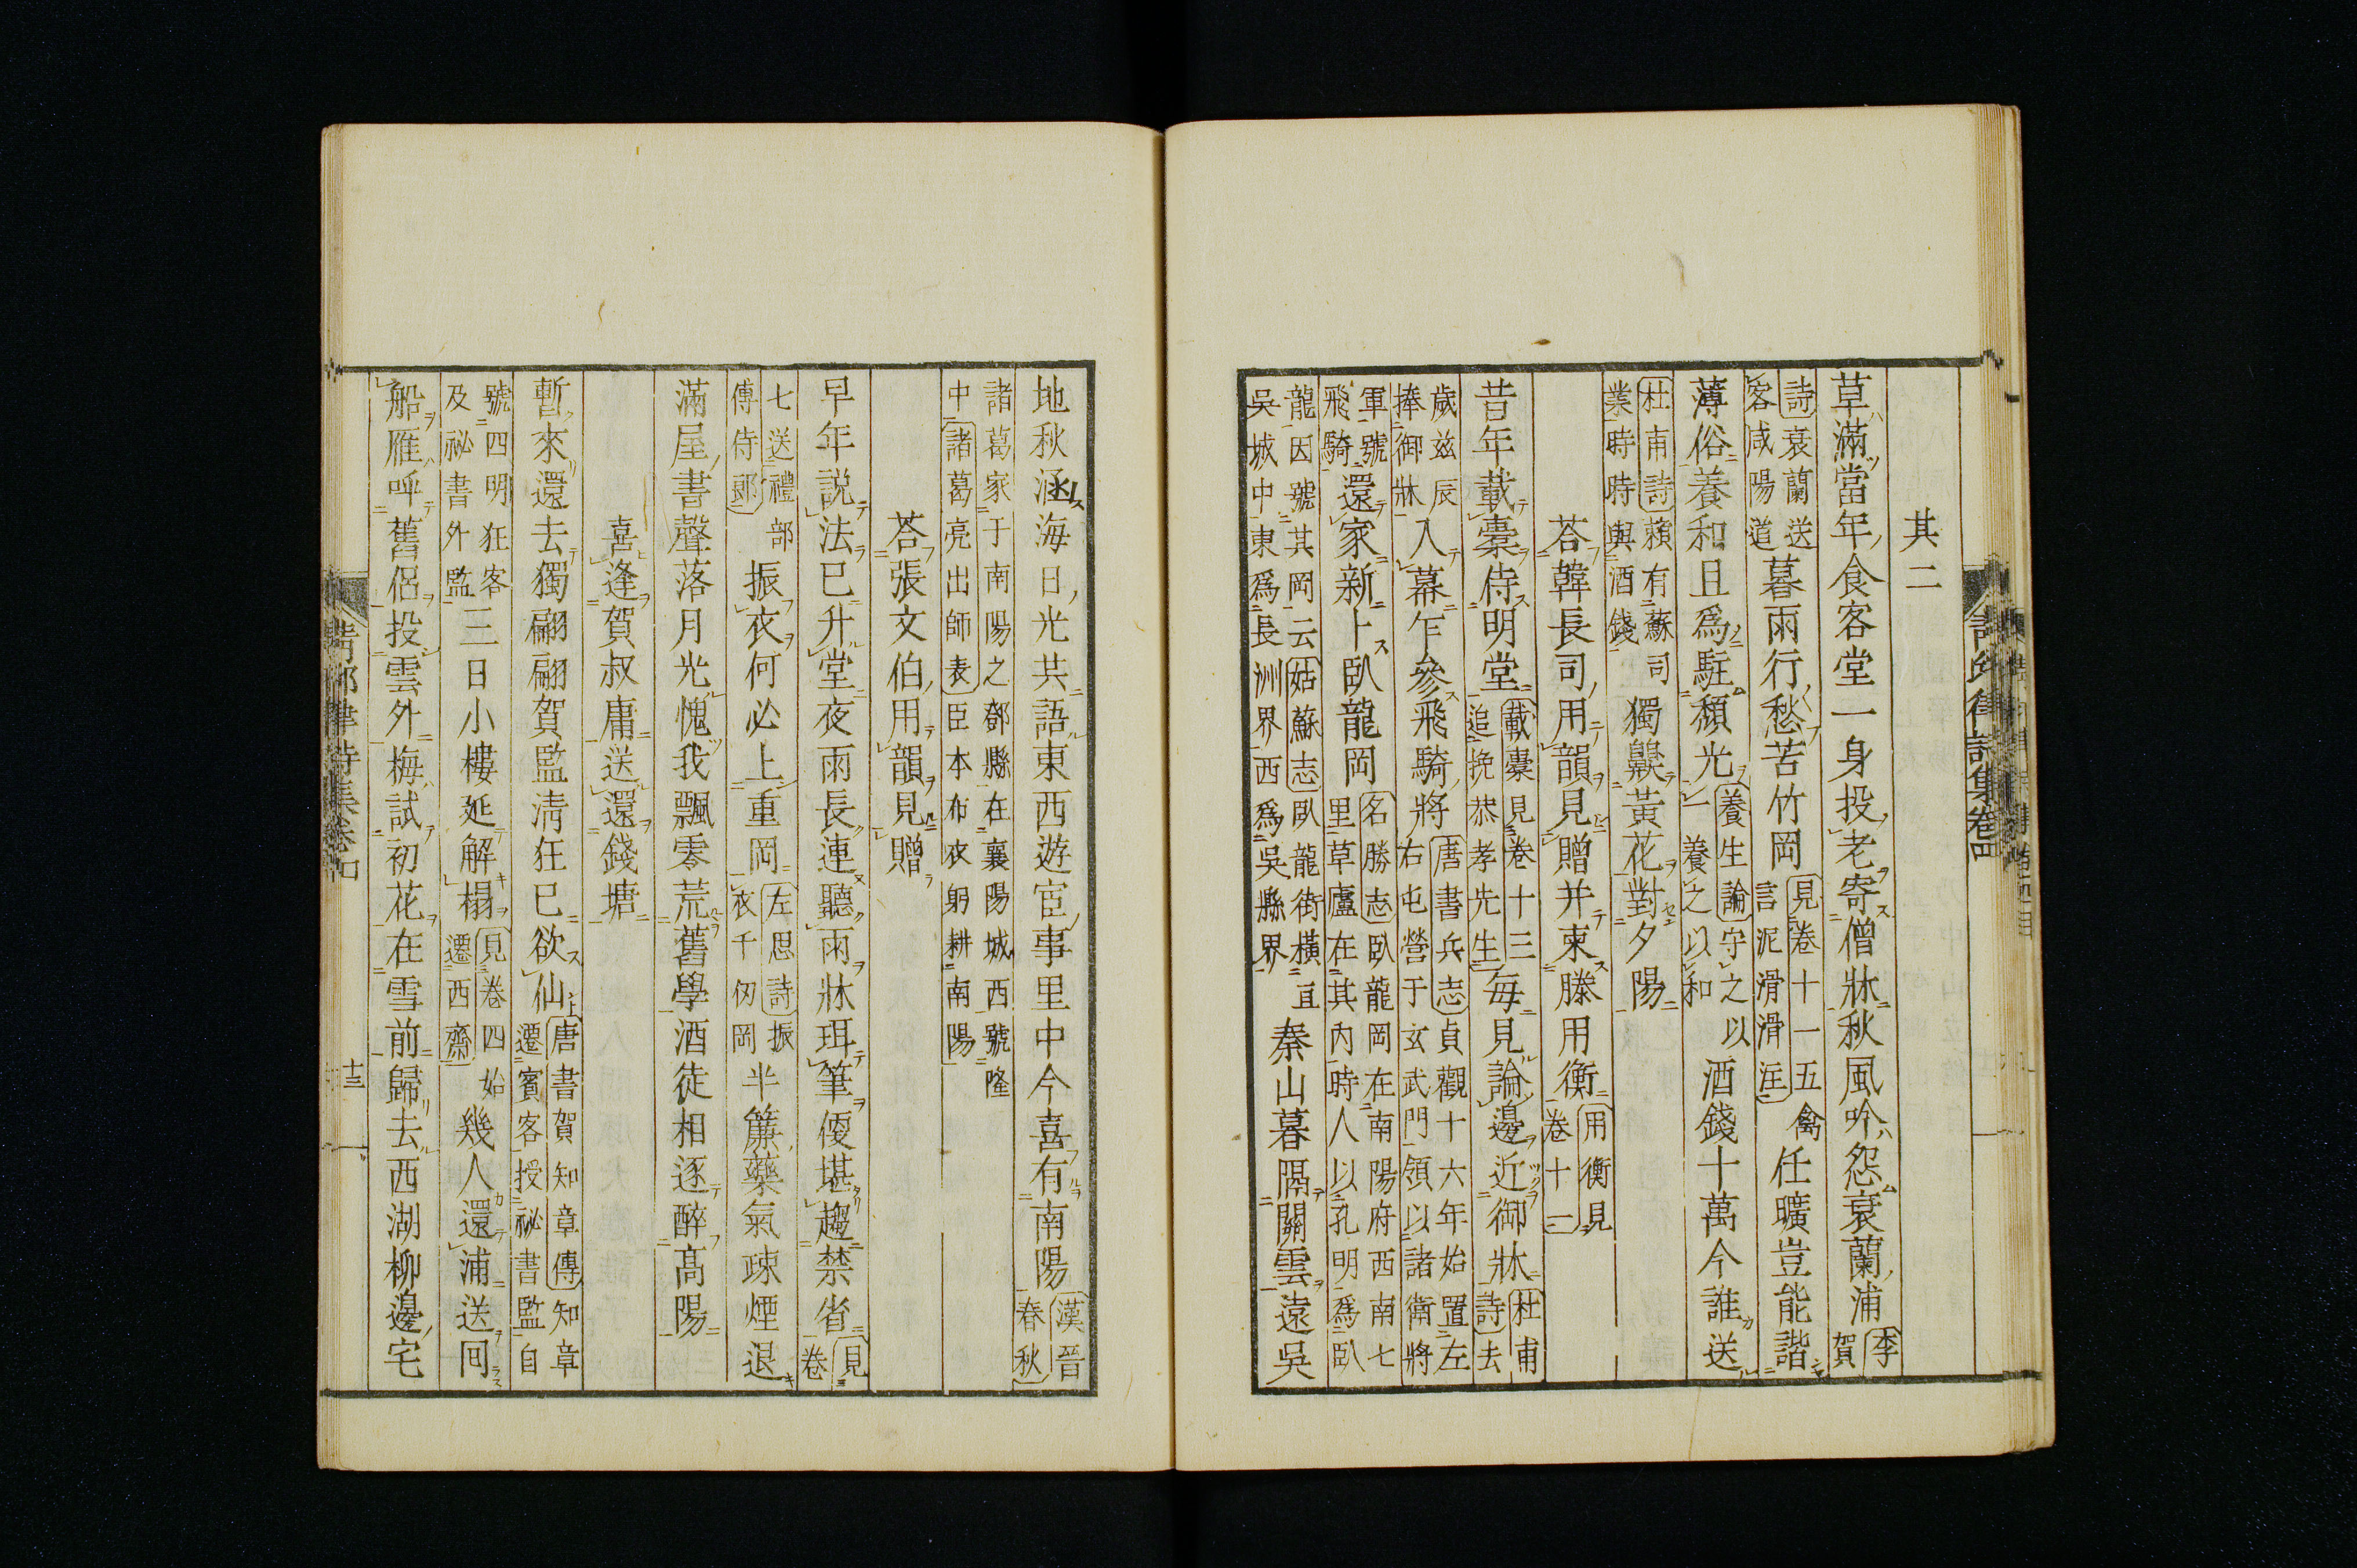 其二
草滿當年食客堂一身投老寄僧牀秋風吟怨衰蘭浦李賀
詩衰蘭送客咸陽道暮雨行愁苦竹岡見卷十一五禽言泥滑滑注任曠豈能諧
薄俗養和且爲駐頹光養生論守之以一養之以和酒錢十萬今誰送
杜甫詩賴有蘇司業時時與酒錢獨齅黃花對夕陽
荅韓長司用韻見贈并柬滕用衡用衡見卷十一
昔年載橐侍明堂載橐見卷十三追挽恭孝先生每見論邊近御牀杜甫詩去
歲兹辰捧御牀入幕乍參飛騎將唐書兵志貞觀十六年始置左右屯營于玄武門領以諸衛將
軍號飛騎還家新卜臥龍岡名勝志臥龍岡在南陽府西南七里草廬在其內時人以孔明爲臥
龍因號其岡云姑蘇志臥龍街橫亘吳城中東爲長洲界西爲吳縣界秦山暮隔關雲遠吳
地秋涵海日光共語東西遊宦事里中今喜有南陽漢晉春秋
諸葛家于南陽之鄧縣在襄陽城西號隆中諸葛亮出師表臣本布衣躬耕南陽
荅張文伯用韻見贈
早年説法已升堂夜雨長連聽雨牀珥筆優堪趨禁省見卷
七送禮部傅侍郎振衣何必上重岡左思詩振衣千仞岡半簾藥氣疎煙退
滿屋書聲落月光愧我飄零荒舊學酒徒相逐醉高陽
喜逢賀叔庸送還錢塘
暫來還去獨翩翩賀監淸狂已欲仙唐書賀知章傳知章遷賓客授祕書監自
號四明狂客及祕書外監三日小樓延解榻見卷四始遷西齋幾人還浦送回
船雁呼舊侶投雲外梅試初花在雪前歸去西湖柳邊宅
十三